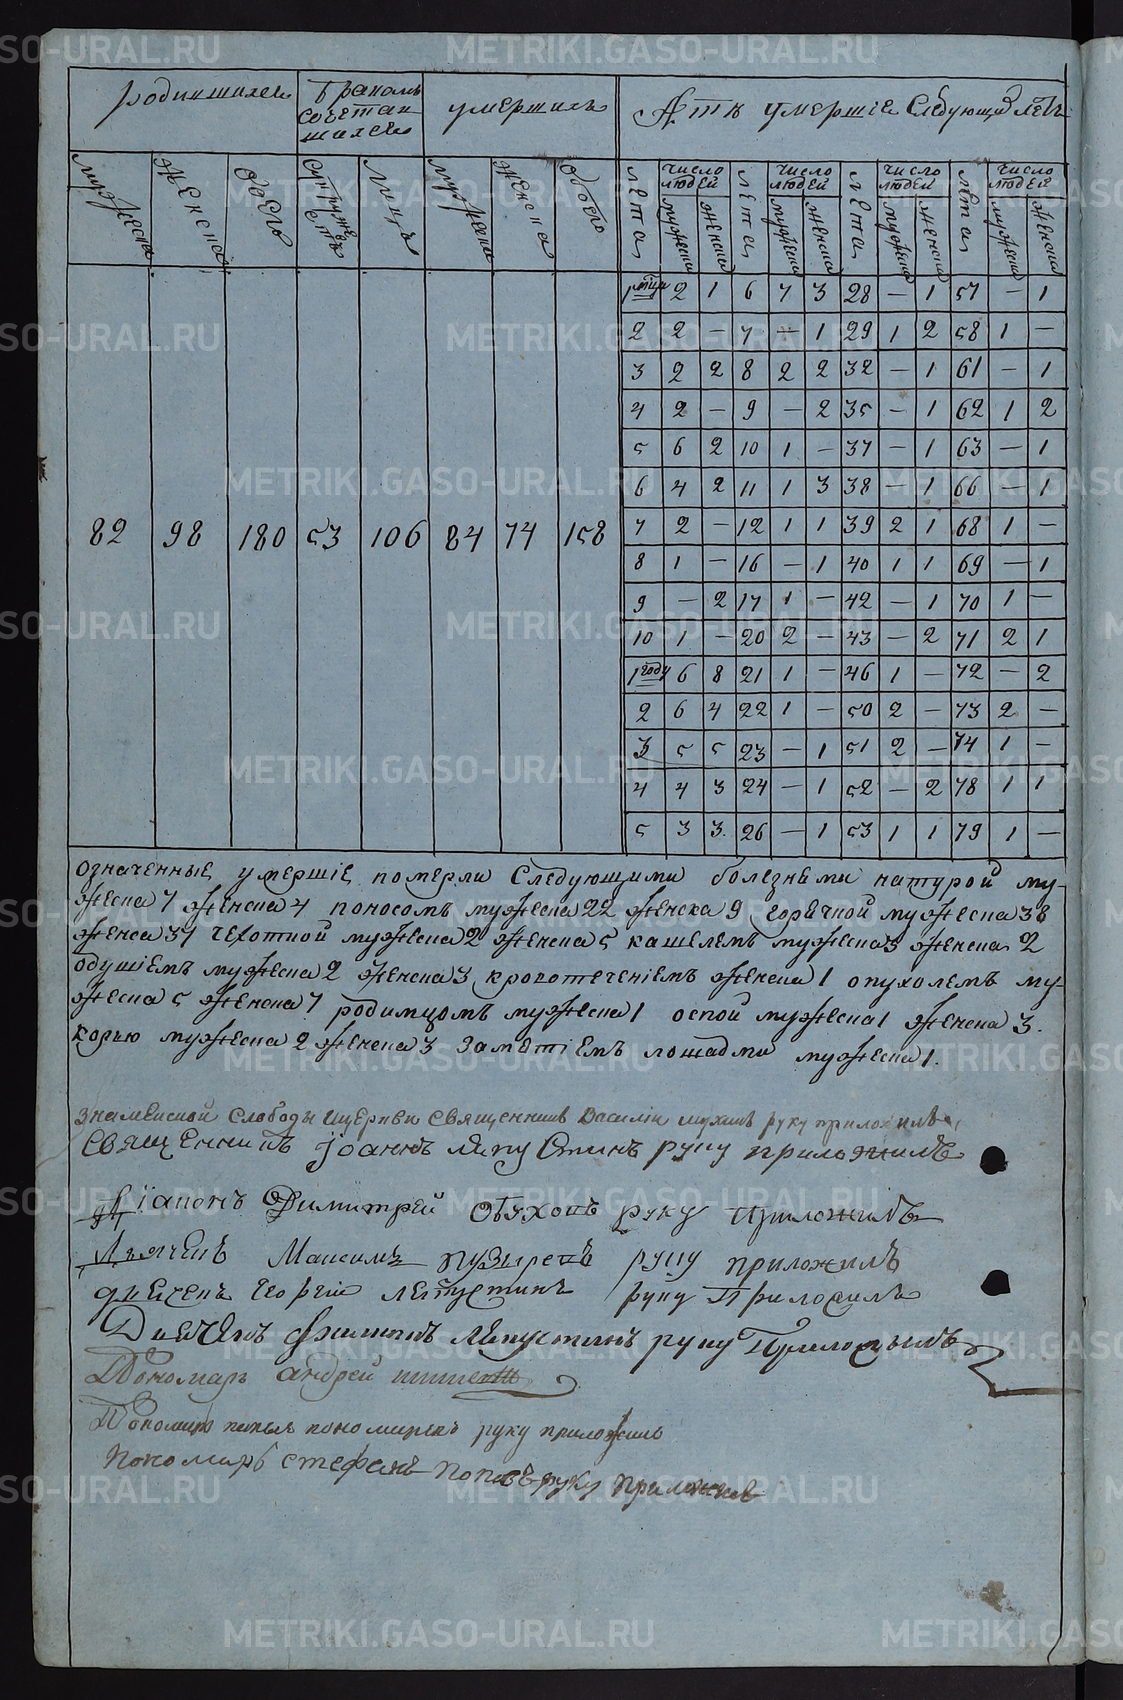 родившихся
бракомъ
сочетав
шихся
умершихъ
А тѣ умершіе следующихъ летъ
мужеска
женска
обоего
супружествъ
лицъ
мужеска
женска
обоего
лета
число людей
мужеска
женска
лета
число людей
мужеска
женска
лета
число людей
мужеска
женска
лета
число людей
мужеска
женска
82 98 180 53 106 84 74 158
1 2 1 6 7 3 28 — 1 57 — 1
2 2 — 7 — 1 29 1 2 58 1 —
3 2 2 8 2 2 32 — 1 61 — 1
4 2 — 9 — 2 35 — 1 62 1 2
5 6 2 10 1 — 37 — 1 63 — 1
6 4 2 11 1 3 38 — 1 66 — 1
7 2 — 12 1 1 39 2 1 68 1 —
8 1 — 16 — 1 40 1 1 69 — 1
9 — 2 17 1 — 42 — 1 70 1 —
10 1 — 20 2 — 43 — 2 71 2 1
1 году 6 8 21 1 — 46 1 — 72 — 2
2 6 4 22 1 — 50 2 — 73 2 —
3 5 5 23 — 1 51 2 — 74 1 —
4 4 3 24 — 1 52 — 2 78 1 1
5 3 3 26 — 1 53 1 1 79 1 —
означенные умершіе померли следующими болезньми натурой му-
жеска 7 женска 4 поносомъ мужеска 22 женска 9 горячкой мужеска 38
женска 37 чехоткой мужеска 2 женска 5 кашелемъ мужеска 3 женска 2
одушіемъ мужеска 2 женска 3 кровотеченіемъ женска 1 опухолемъ му-
жеска 5 женска 7 родимцомъ мужеска 1 оспой мужеска 1 женска 3.
корью мужеска 2 женска 3 замятіемъ лошадми мужеска 1.
Знаменской Слободы Церкви Священникъ Василій руку приложилъ
Священникъ Іоаннъ Ляпустинъ руку приложилъ
Діаконъ Димитрей Обуховъ руку приложилъ
Дьячекъ Максимъ Пузыревъ руку приложилъ
дьечекъ Георгій Лепустинъ руку приложилъ
Дьечекъ Филипъ Лепустинъ руку приложилъ
Пономарь андрей
Пономарь пономаревъ руку приложилъ
Пономарь Стефанъ Поповъ руку приложилъ
METRIKI.GASO-URAL.RU